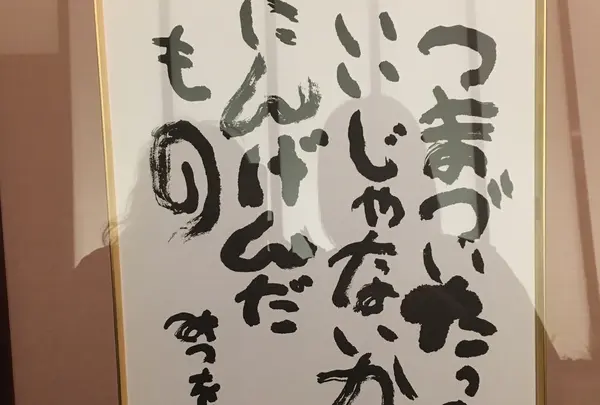 つまづいたっ
いいじゃないか
にんげんだ
もの
みつを